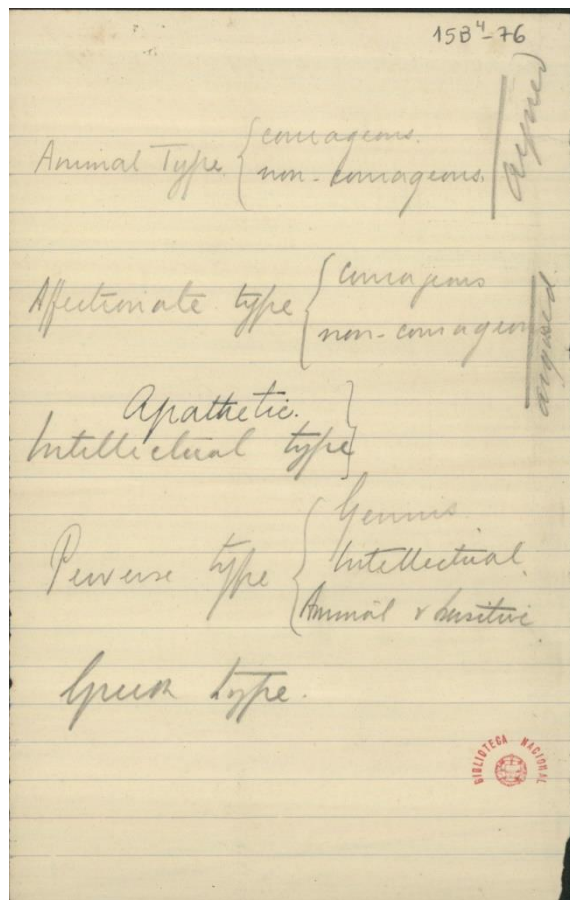 15B⁴-76
Animal Type { courageous.
non-courageous.
argued
Affectionate type { courageous
non-courageous
argued
Apathetic.
Intellectual type }
Perverse type { Genius
Intellectual.
Animal & Sensitive
type.
BIBLIOTECA NACIONAL